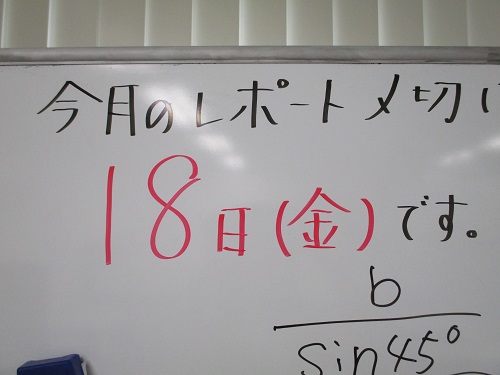 今月のレポートメ切は
18日(金)です。
b
sin45°